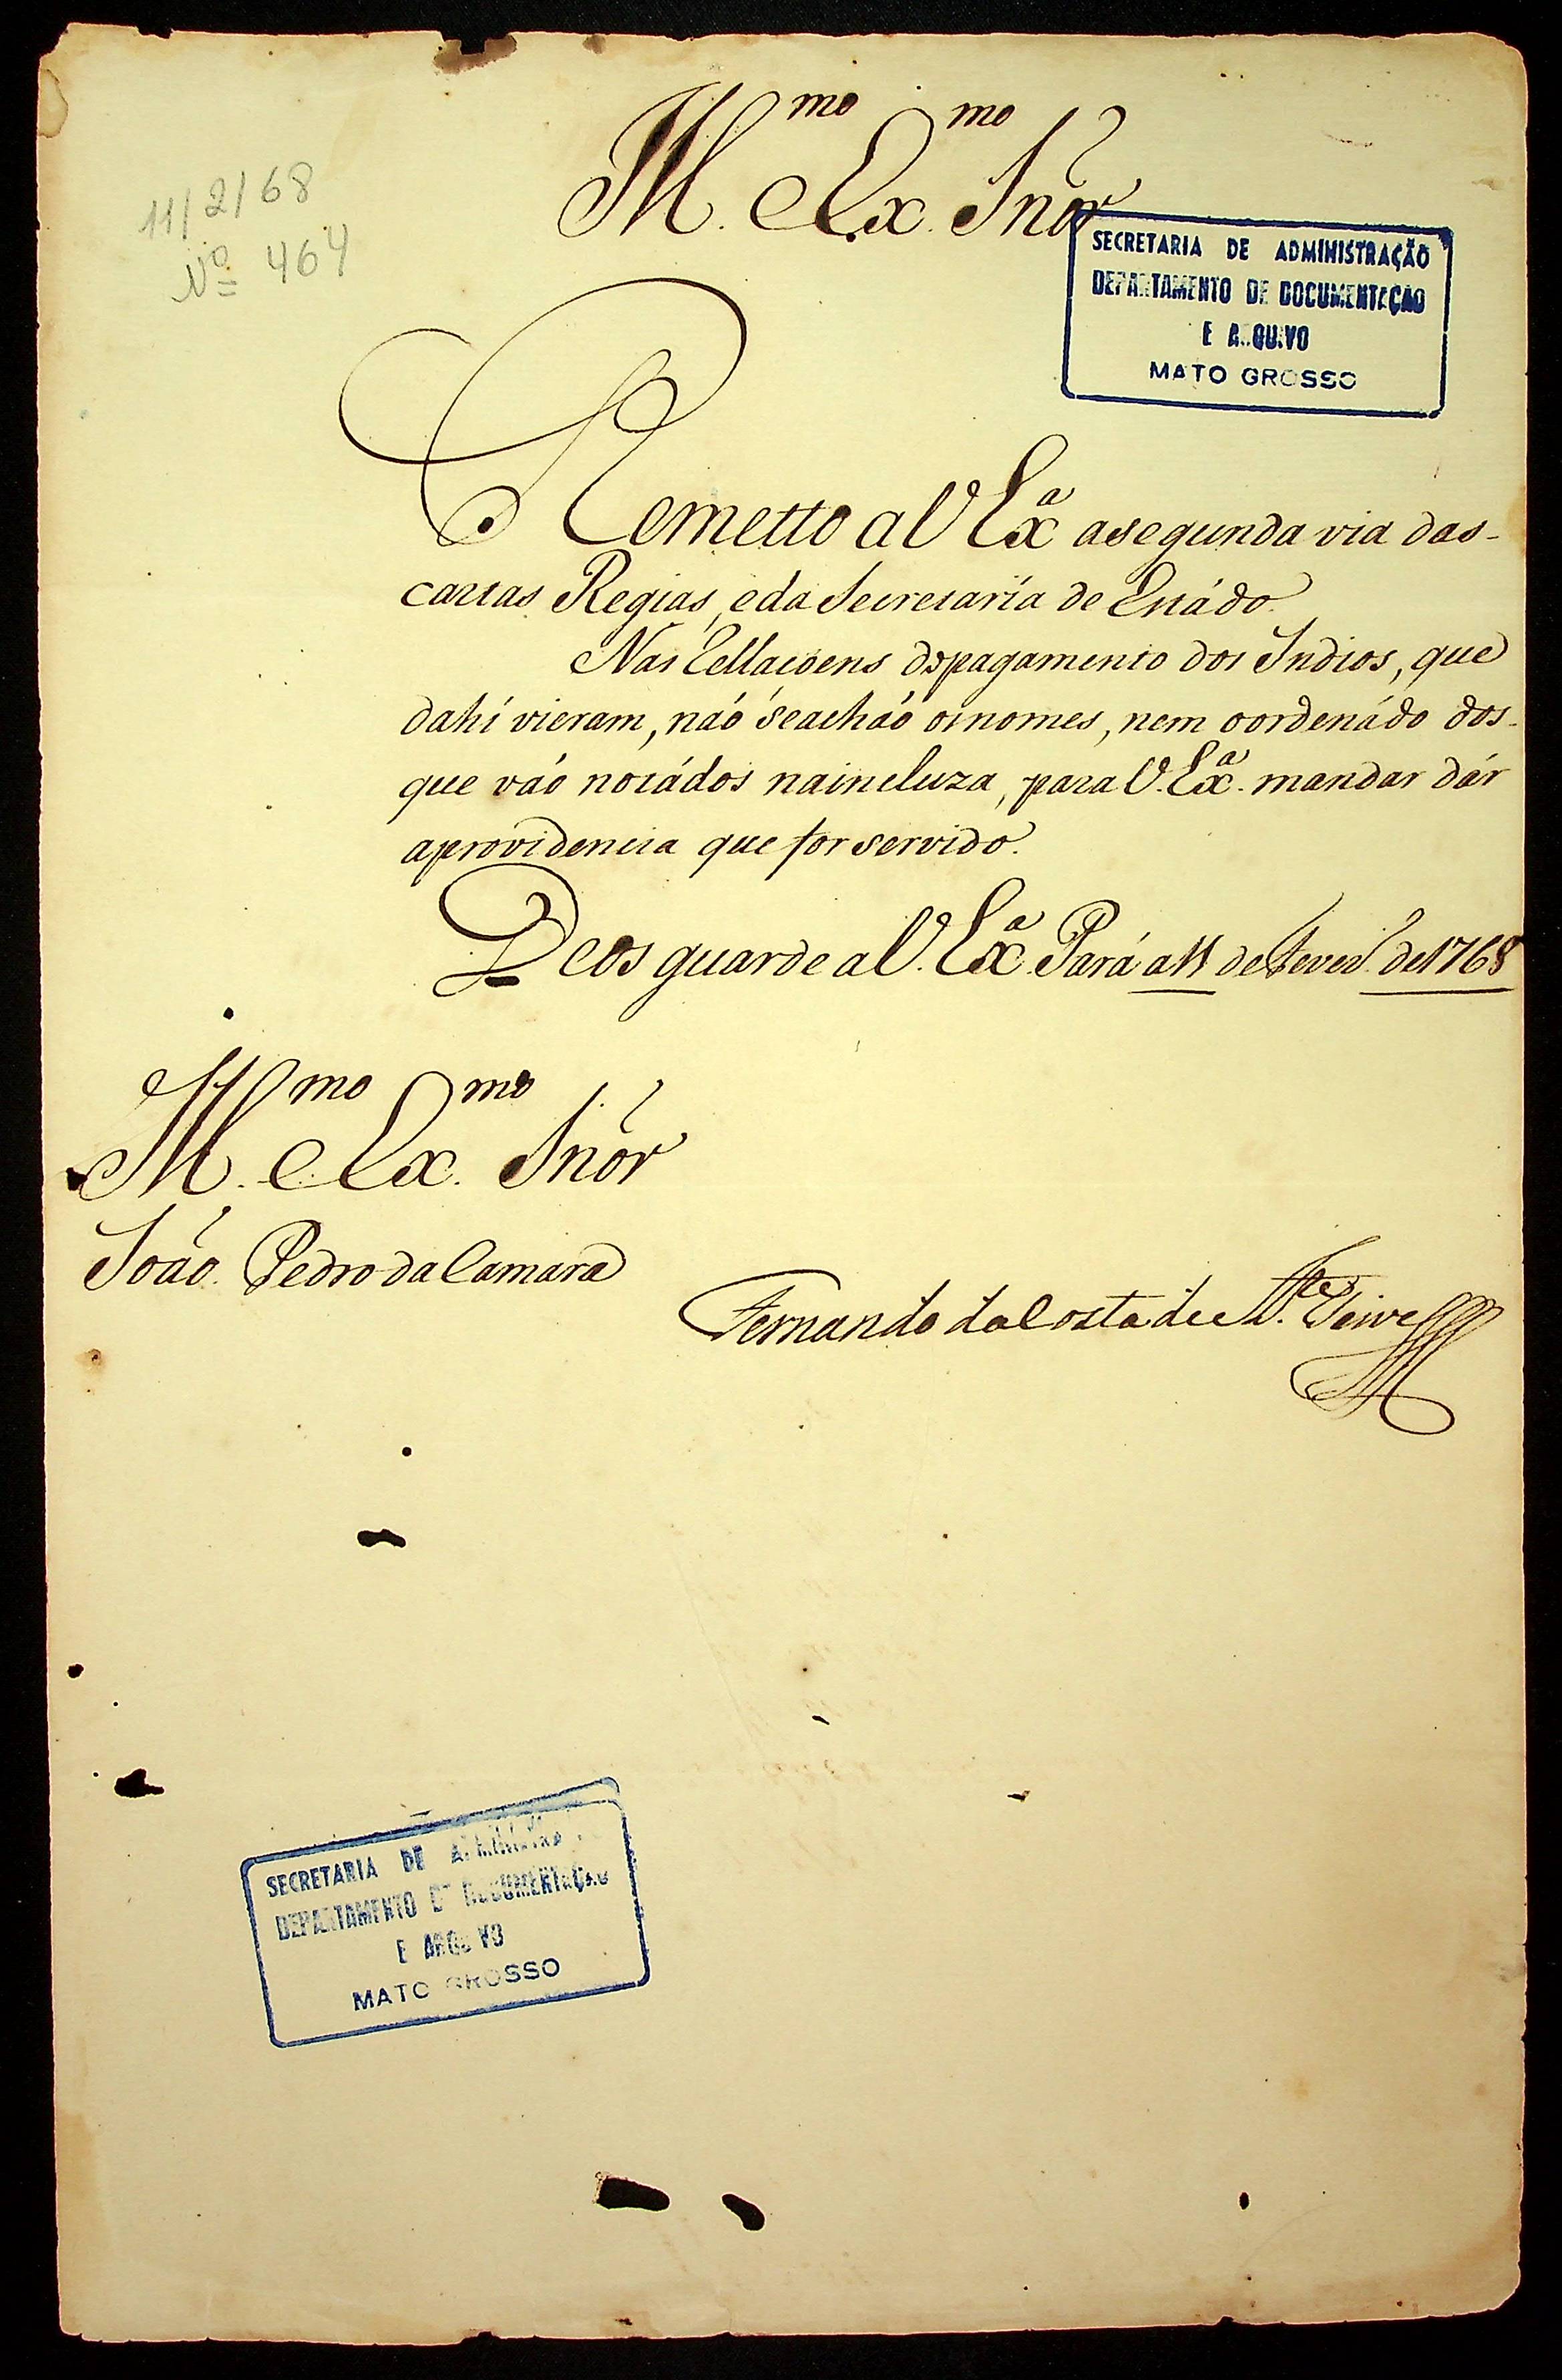 11/2/68
Nº 464
Ill.mo e Ex.mo Snõr
SECRETARIA DE ADMINISTRAÇÃO
DEPARTAMENTO DE DOCUMENTAÇÃO
E ARQUIVO
MATO GROSSO
Remetto a V Ex.ª a segunda via das
cartas Regias, e da Secretaría de Estádo.
Nas Rellacoens do pagamento dos Indios, que
dahi vieram, náo se acháo os nomes, nem o ordenádo dos
que váo notádos na incluza, para V. Ex.ª mandar dár
a providencia que for servido.
Deos guarde a V. Ex.ª Pará a 11 de Fever.º de 1768
Ill.mo e Ex.mo Snõr
Joáo Pedro da Camara
Fernando da Costa de At.de Teive
SECRETARIA DE
DEPARTAMENTO DE DOCUMENTAÇÃO
E ARQUIVO
MATO GROSSO